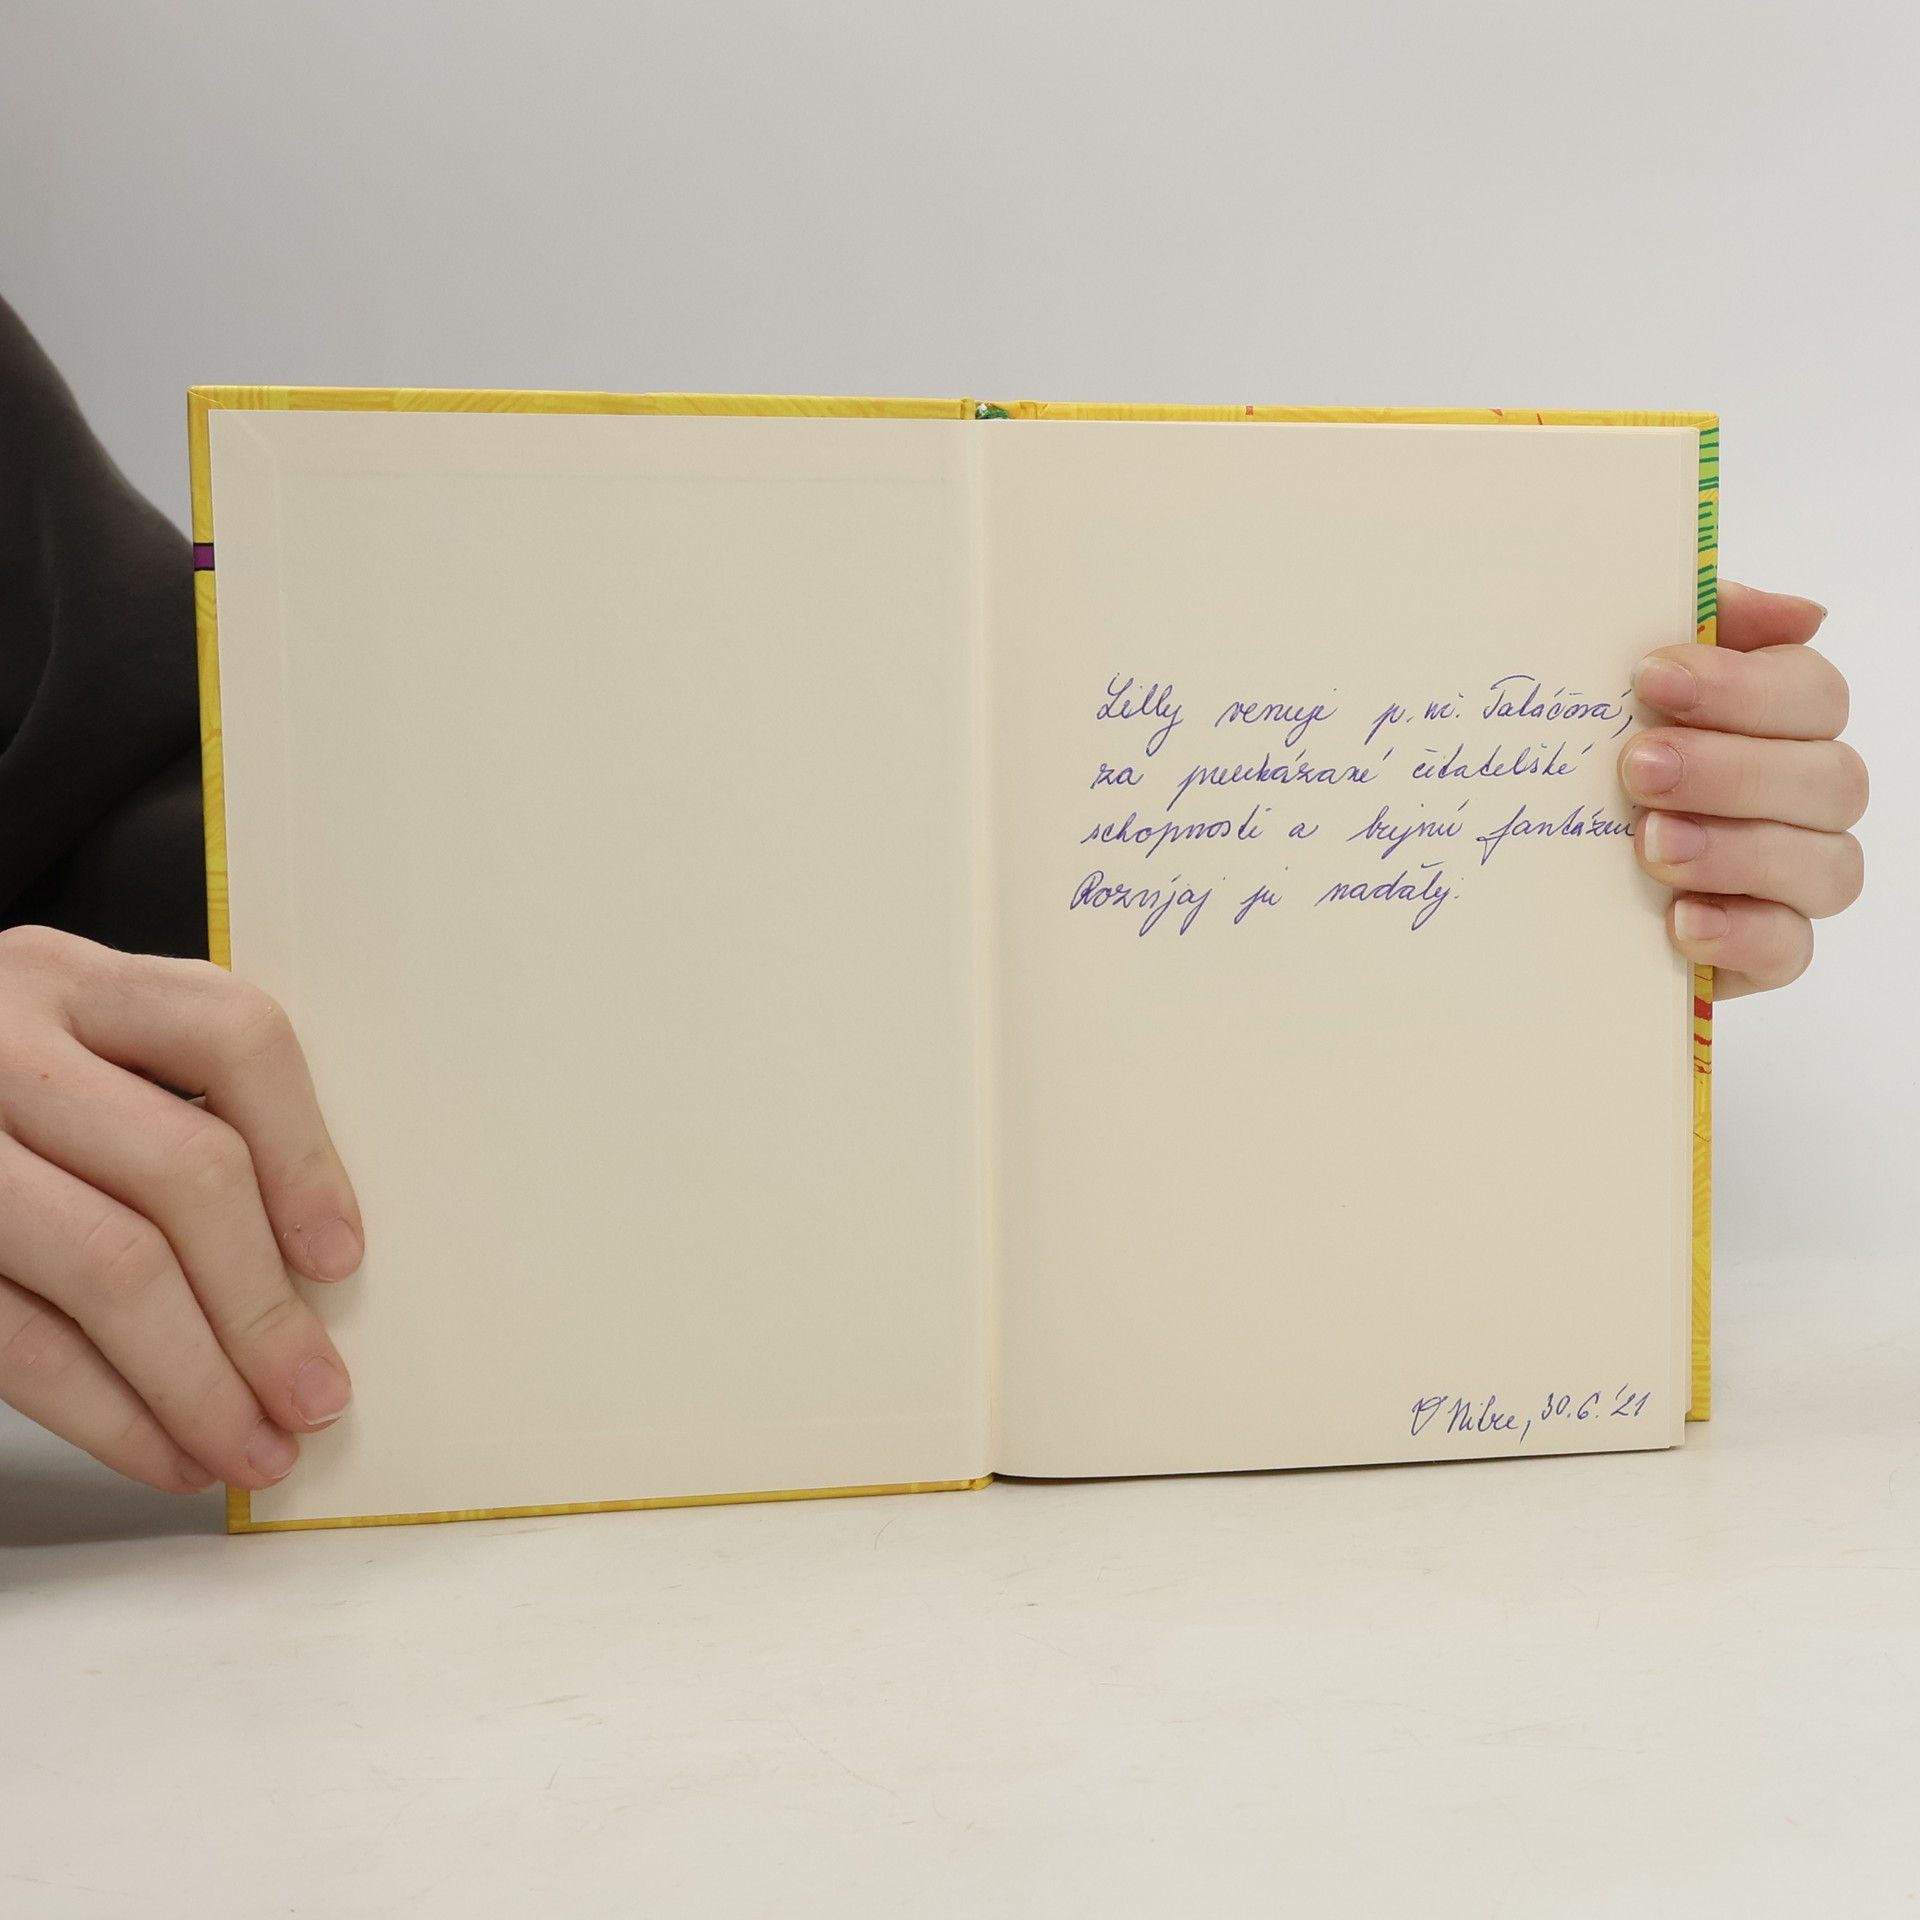 Lilly venuje p. uč. Taláčová,
za preukázané čitateľské
schopnosti a bujnú fantáziu
Rozvíjaj ju naďalej.
V Nitre, 30.6.'21